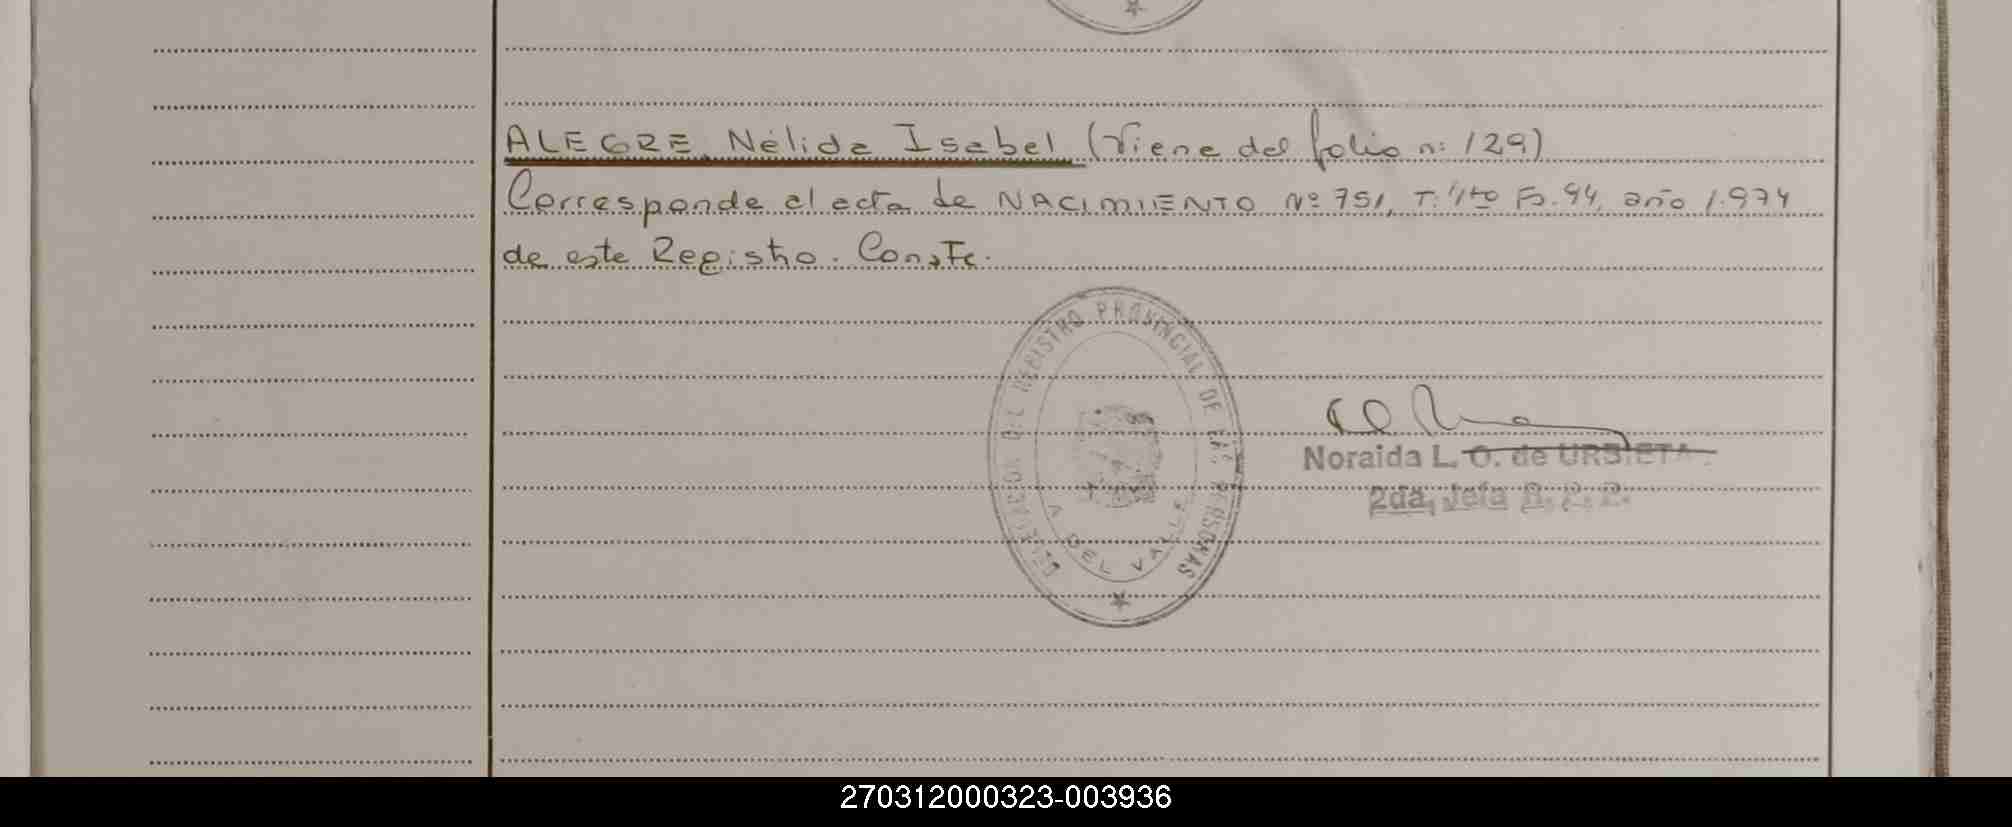 ALEGRE, Nélida Isabel (Viene del folio nº 129)
Corresponde al acta de NACIMIENTO Nº 751, T. 4to Fo. 94, año 1.974
de este Registro. Conste.
DELEGACION DEL REGISTRO PROVINCIAL DE LAS PERSONAS
DEL VALLE
Noraida L. O. de URBIETA
2da, Jefa R. P. P.
270312000323-003936